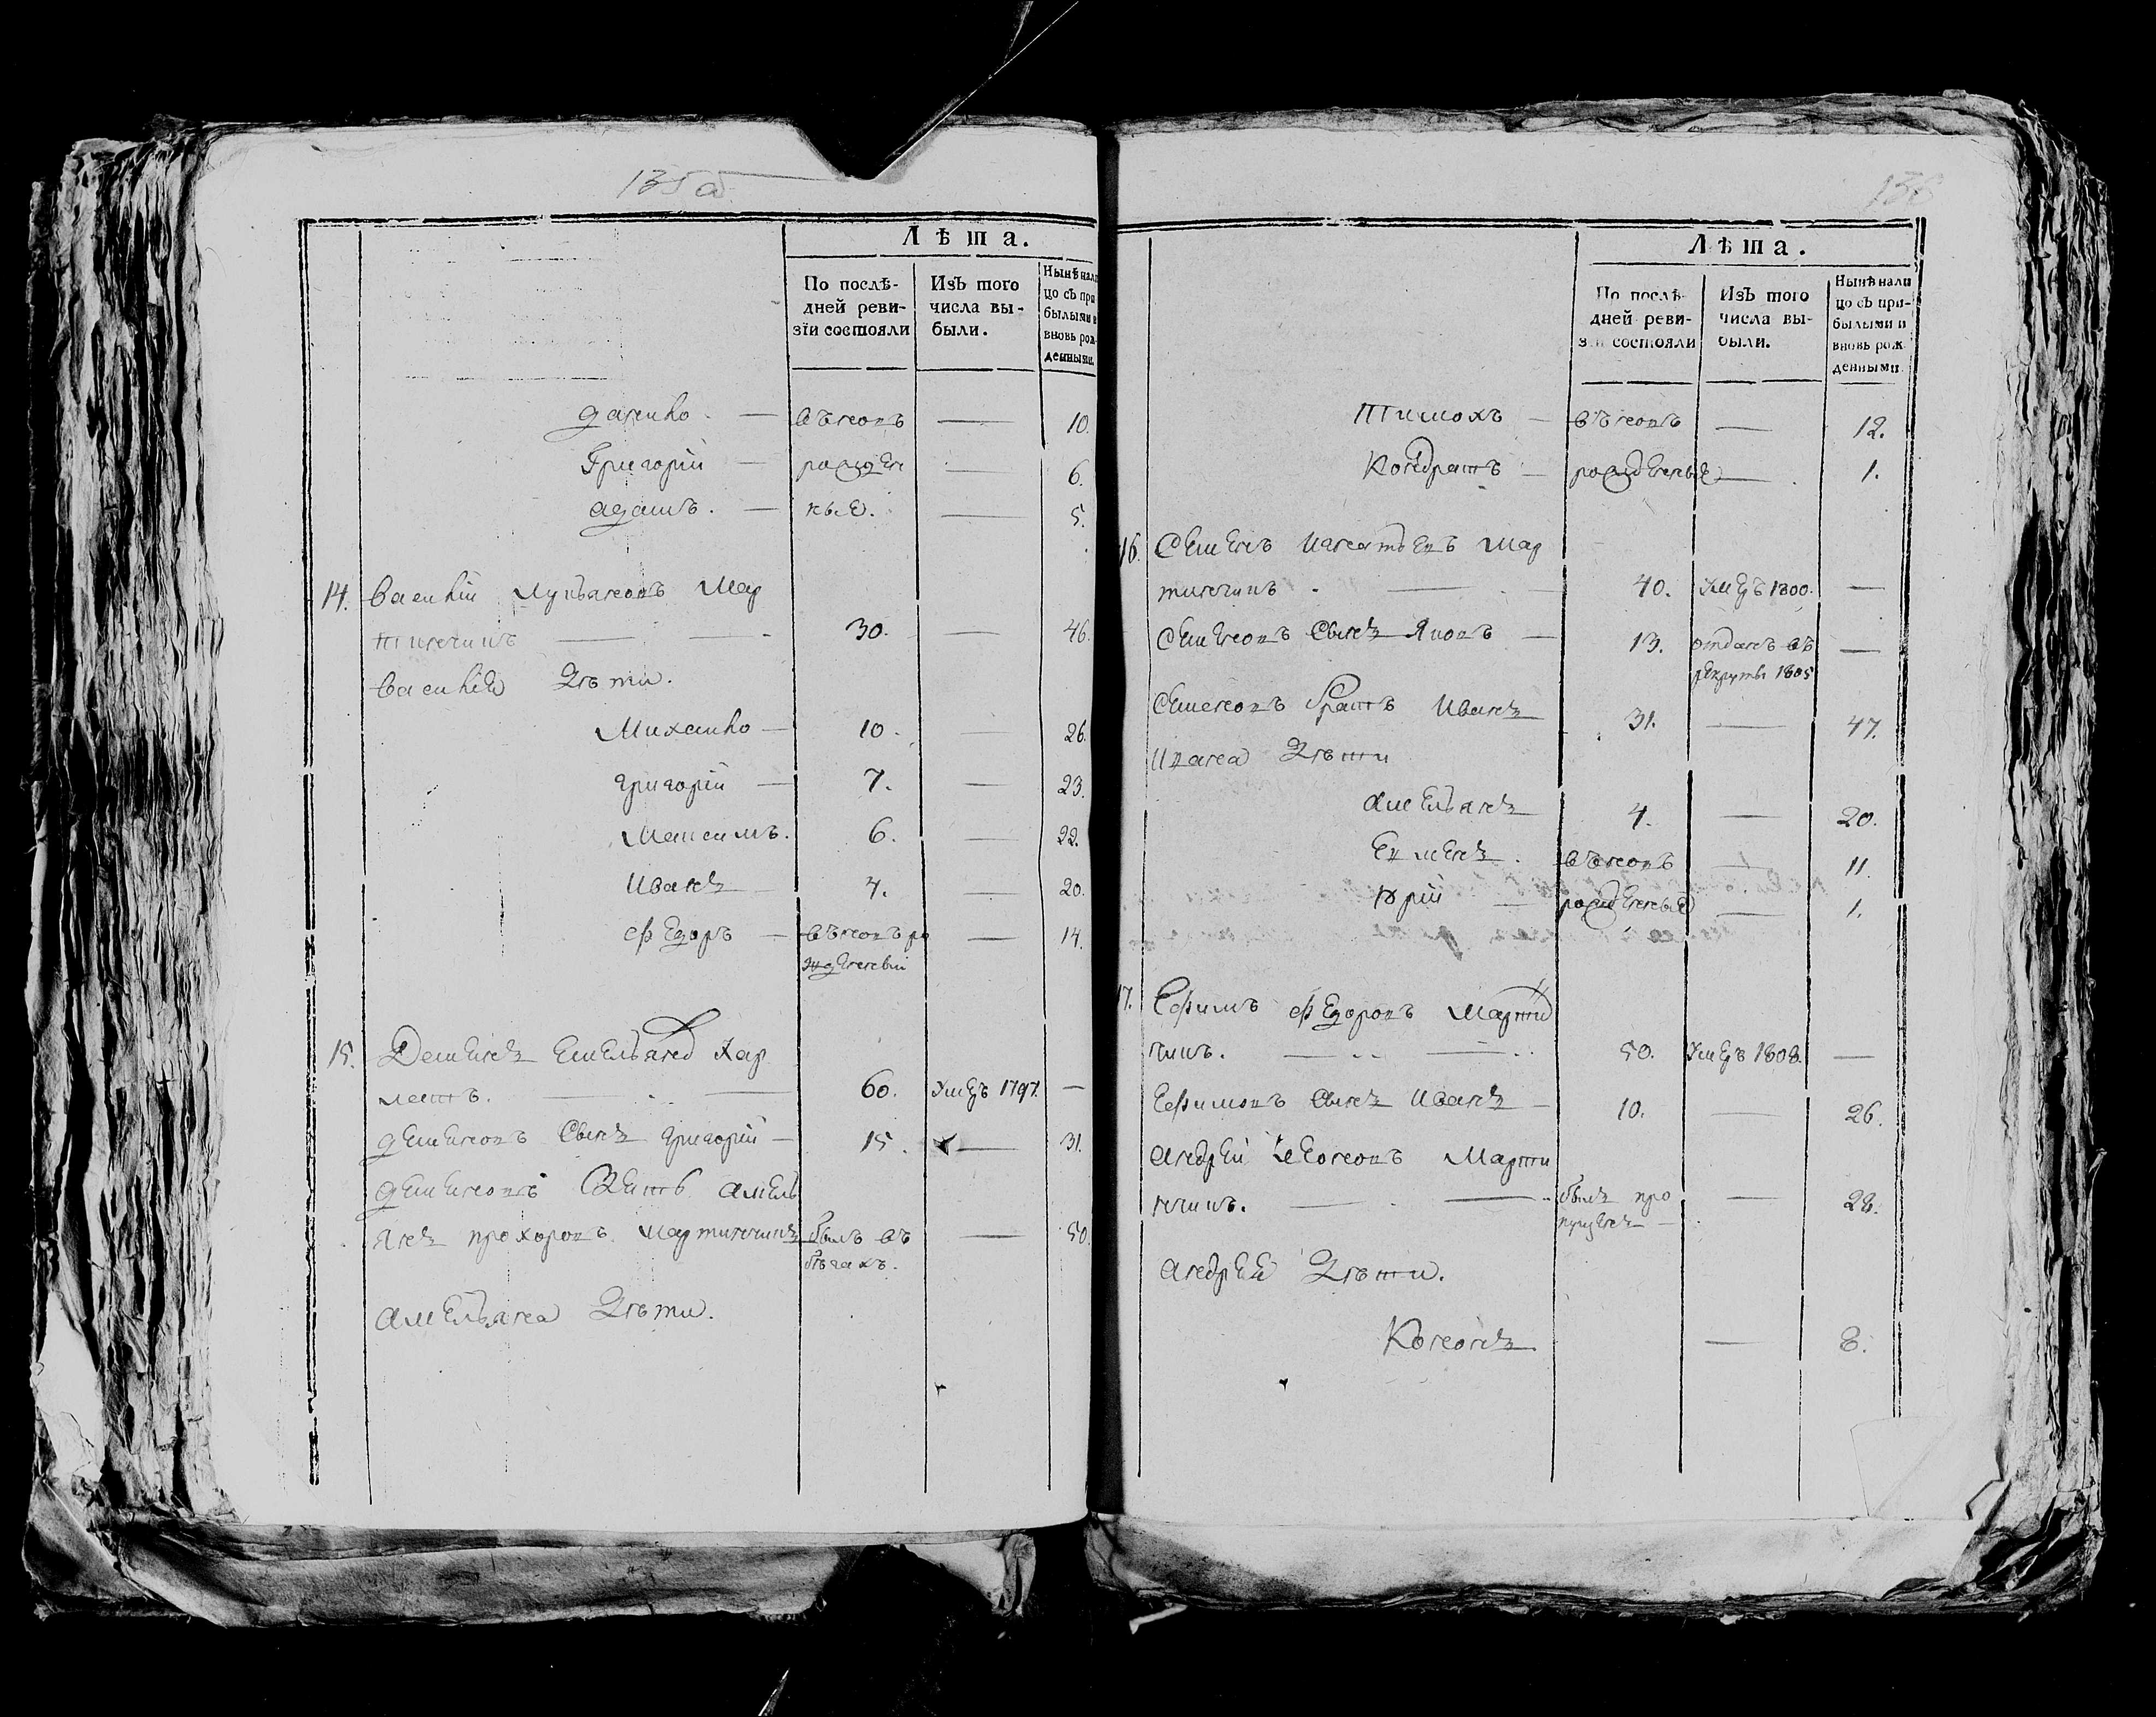 135 об
Лѣта.
По послѣ-
дней реви-
зїи состояли
Изъ того
числа вы-
были.
Нынѣ нали
цо съ при
былыми и
вновь рож-
денными.
Данило. — въновъ — 10.
Григорій — рожден — 6.
Адамъ. — ные. — 5.
14. Василій Лукьяновъ Мар
тинчикъ — 30. — 46.
Василія Дѣти.
Михайло — 10. — 26.
Григорій — 7. — 23.
Максимъ. 6. — 22.
Иванъ — 4. — 20.
Федоръ — въновъ ро — 14.
жденный
15. Деменъ Емельянов Хар
60. Умеръ 1797. —
Деменовъ Сынъ Григорій — 15. — 31.
Деменовъ Зять Амель
янъ Прохоровъ Мартинчикъ былъ въ — 50.
бѣгахъ.
Амельяна Дѣти.
136
Лѣта.
По послѣ-
дней реви-
зїи состояли
Изъ того
числа вы-
были.
Нынѣ нали
цо съ при-
былыми и
вновь рож
денными.
Тимохъ — въновъ — 12.
Кондратъ — рожденные — 1.
16. Семенъ Игнатьевъ Мар
тинчикъ. — 40. Умеръ 1800. —
Семеновъ Сынъ Яковъ — 13. отданъ въ —
рекруты 1805
Семеновъ Братъ Иванъ 31. — 47.
Ивана Дѣти
Амельянъ 4. — 20.
въновъ — 11.
Юрій — рожденные — 1.
17. Ефимъ Федоровъ Марти
чикъ. — 50. Умеръ 1808. —
Ефимовъ Сынъ Иванъ — 10. — 26.
Андрей Леоновъ Марти
нчикъ. — былъ про — 28.
пущенъ —
Андрея Дѣти.
Кононъ — 8.